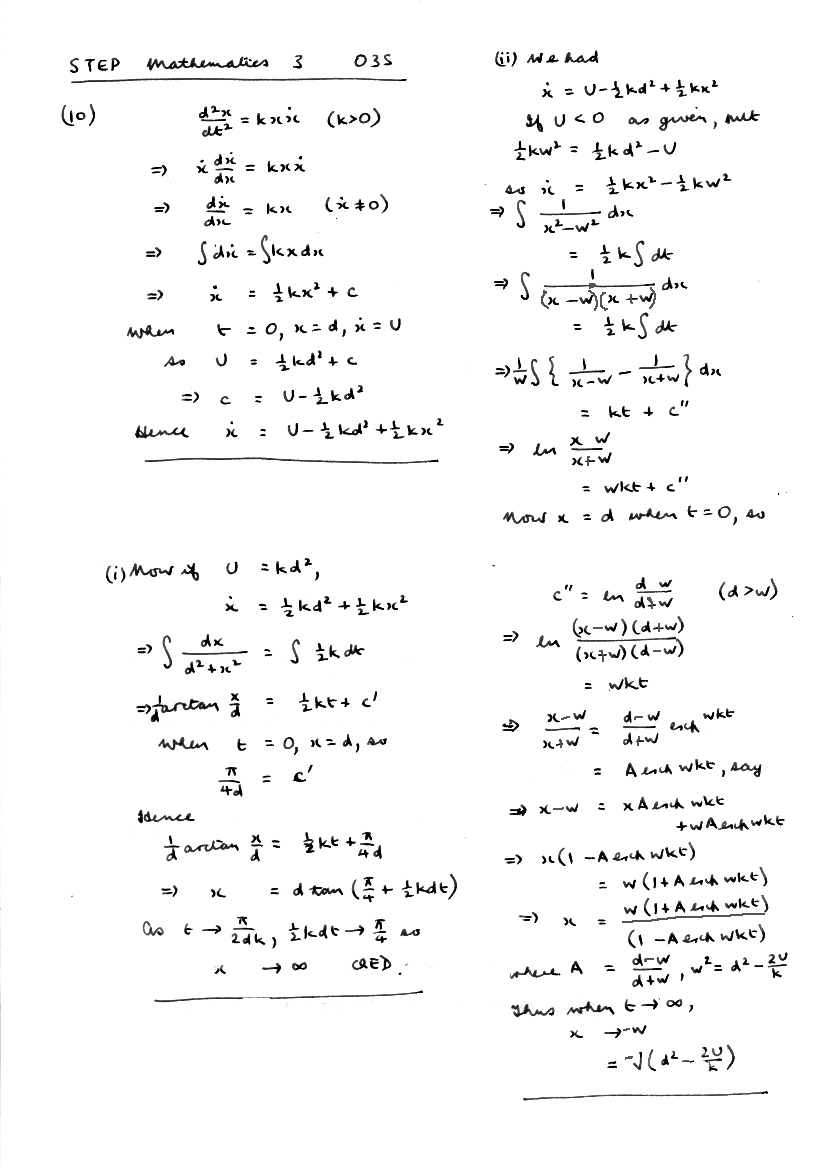 STEP Mathematics 3 03S
(10) d²x/dt² = kxẋ (k>0)
⇒ ẋ dẋ/dx = kxẋ
⇒ dẋ/dx = kx (ẋ ≠ 0)
⇒ ∫dẋ = ∫kx dx
⇒ ẋ = ½kx² + c
When t = 0, x = d, ẋ = U
so U = ½kd² + c
⇒ c = U − ½kd²
Hence ẋ = U − ½kd² + ½kx²
(i) Now if U = kd²,
ẋ = ½kd² + ½kx²
⇒ ∫ dx/(d² + x²) = ∫ ½k dt
⇒ 1/d arctan x/d = ½kt + c'
When t = 0, x = d, so
π/4d = c'
Hence
1/d arctan x/d = ½kt + π/4d
⇒ x = d tan (π/4 + ½kdt)
As t → π/2dk, ½kdt → π/4 so
x → ∞ QED.
(ii) We had
ẋ = U − ½kd² + ½kx²
If U < 0 as given, put
½kw² = ½kd² − U
so ẋ = ½kx² − ½kw²
⇒ ∫ 1/(x² − w²) dx
= ½k∫ dt
⇒ ∫ 1/((x − w)(x + w)) dx
= ½k∫ dt
⇒ 1/w ∫ { 1/(x−w) − 1/(x+w) } dx
= kt + c"
⇒ ln (x w)/(x+w)
= wkt + c"
Now x = d when t = 0, so
c" = ln (d w)/(d+w) (d > w)
⇒ ln ((x−w)(d+w))/((x+w)(d−w))
= wkt
⇒ (x−w)/(x+w) = (d−w)/(d+w) exp wkt
= A exp wkt, say
⇒ x−w = xA exp wkt
+ wA exp wkt
⇒ x(1 − A exp wkt)
= w(1 + A exp wkt)
⇒ x = w(1 + A exp wkt)/(1 − A exp wkt)
where A = (d−w)/(d+w), w² = d² − 2U/k
Thus when t → ∞,
x → −w
= −√(d² − 2U/k)